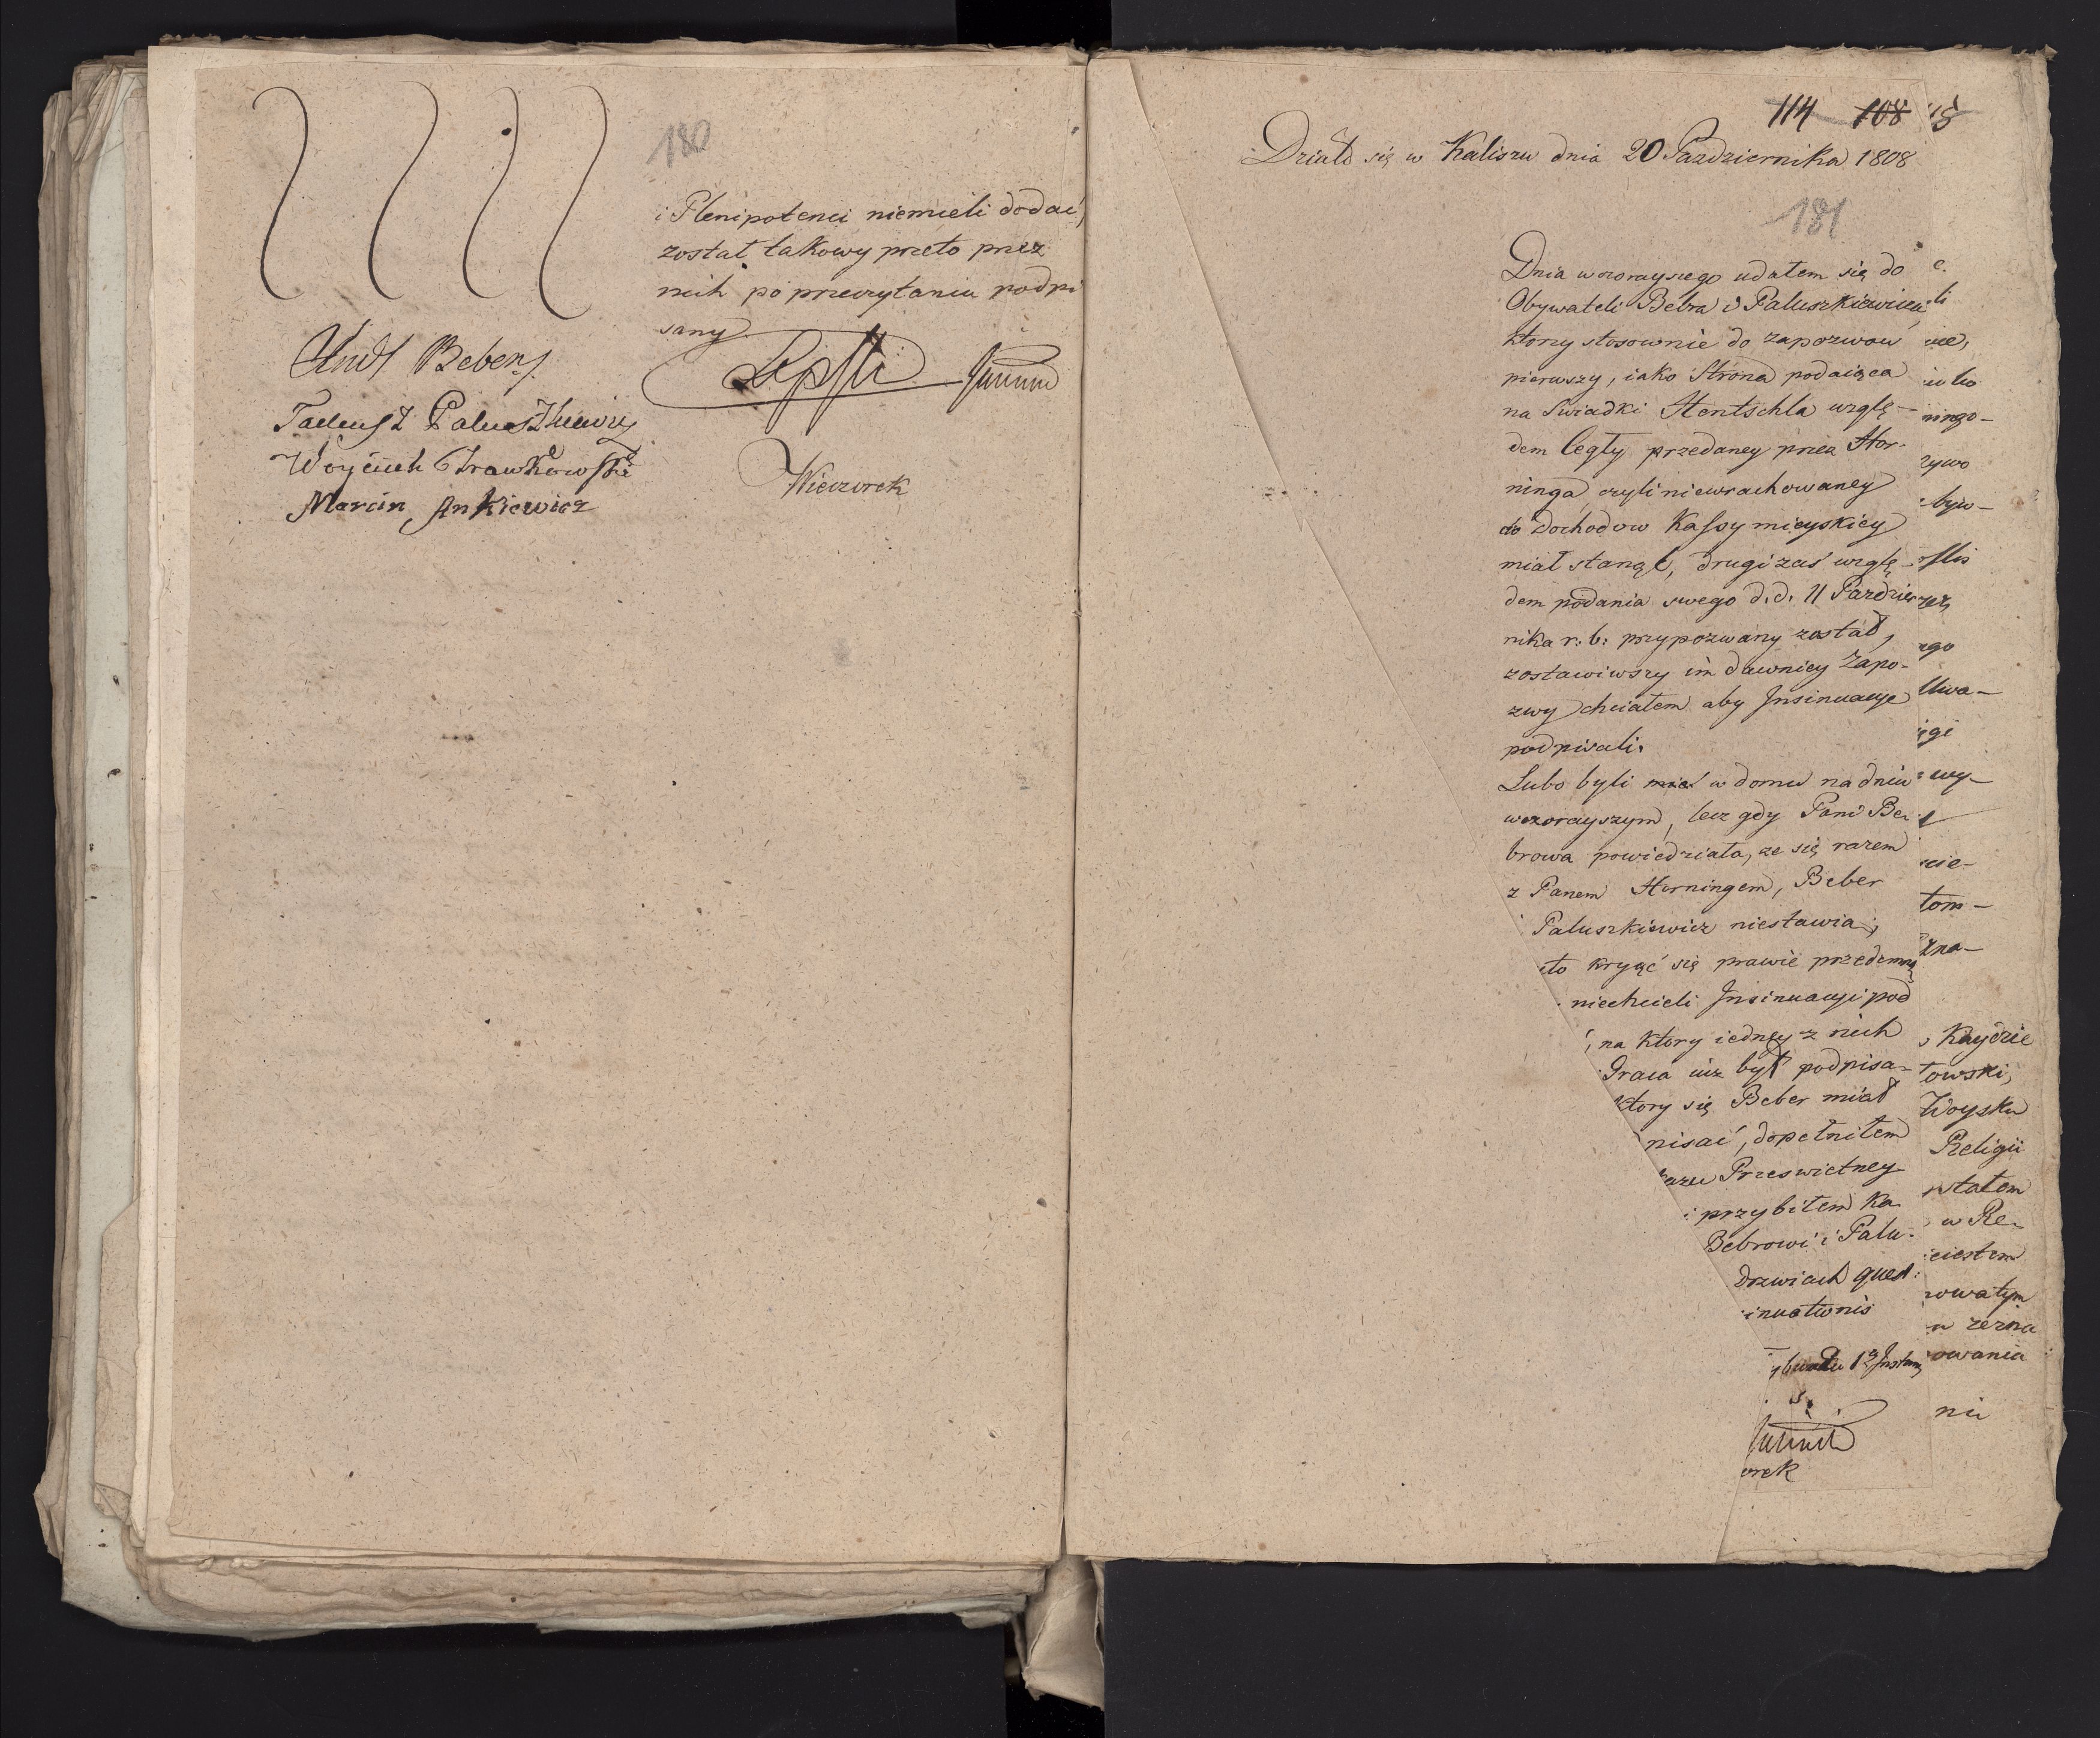 180
i Plenipotenci niemieli dodać,
został takowy przeto przez
nich po przeczytaniu podpi
sany.
Andr Beber
Tadeusz Paluszkiewicz
Woyciech
Marcin Ankiewicz
Wieczorek
114 108
Działo się w Kaliszu dnia 20 Pazdziernika 1808
181
Dnia wczorayszego udałem się do
Obywateli Bebra i Paluszkiewicza,
ktorzy stosownie do zapozwow
pierwszy, iako Strona podaiąca
na Swiadki Hentschla wzglę-
dem Cegły przedaney przez Hor-
ninga, czyli niewrachowaney
do Dochodow Kassy mieyskiey
miał stanąć, drugi zaś wzglę-
dem podania swego d.d. 11 Pazdzier
nika r: b: przypozwany został,
zostawiwszy im dawniey Zapo-
zwy chciałem aby Insinuacye
podpisali.
Lubo byli w domu na dniu
wczorayszym, lecz gdy Pani Be-
browa powiedziała, ze się razem
z Panem Horningem, Beber
i Paluszkiewicz niestawią,
kryąć się prawie przedemną
niechcieli Insinuacyi pod
na ktory iedney z nich
Graca iuz był podpisa-
ktory się Beber miał
pisać, dopełniłem
Przeswietney
i przybiłem Ka
Bebrowi i Palu-
drzwiach quest:
inuationis
1ey Instanc
orek
e.
li
ningo-
żywo
byw-
ego
Uwa-
wy-
cie-
tom-
zna-
Kaydzie
towski,
Woysku
Religii
stałem
w Re-
iestem
rowatym
zezna
owania
nia